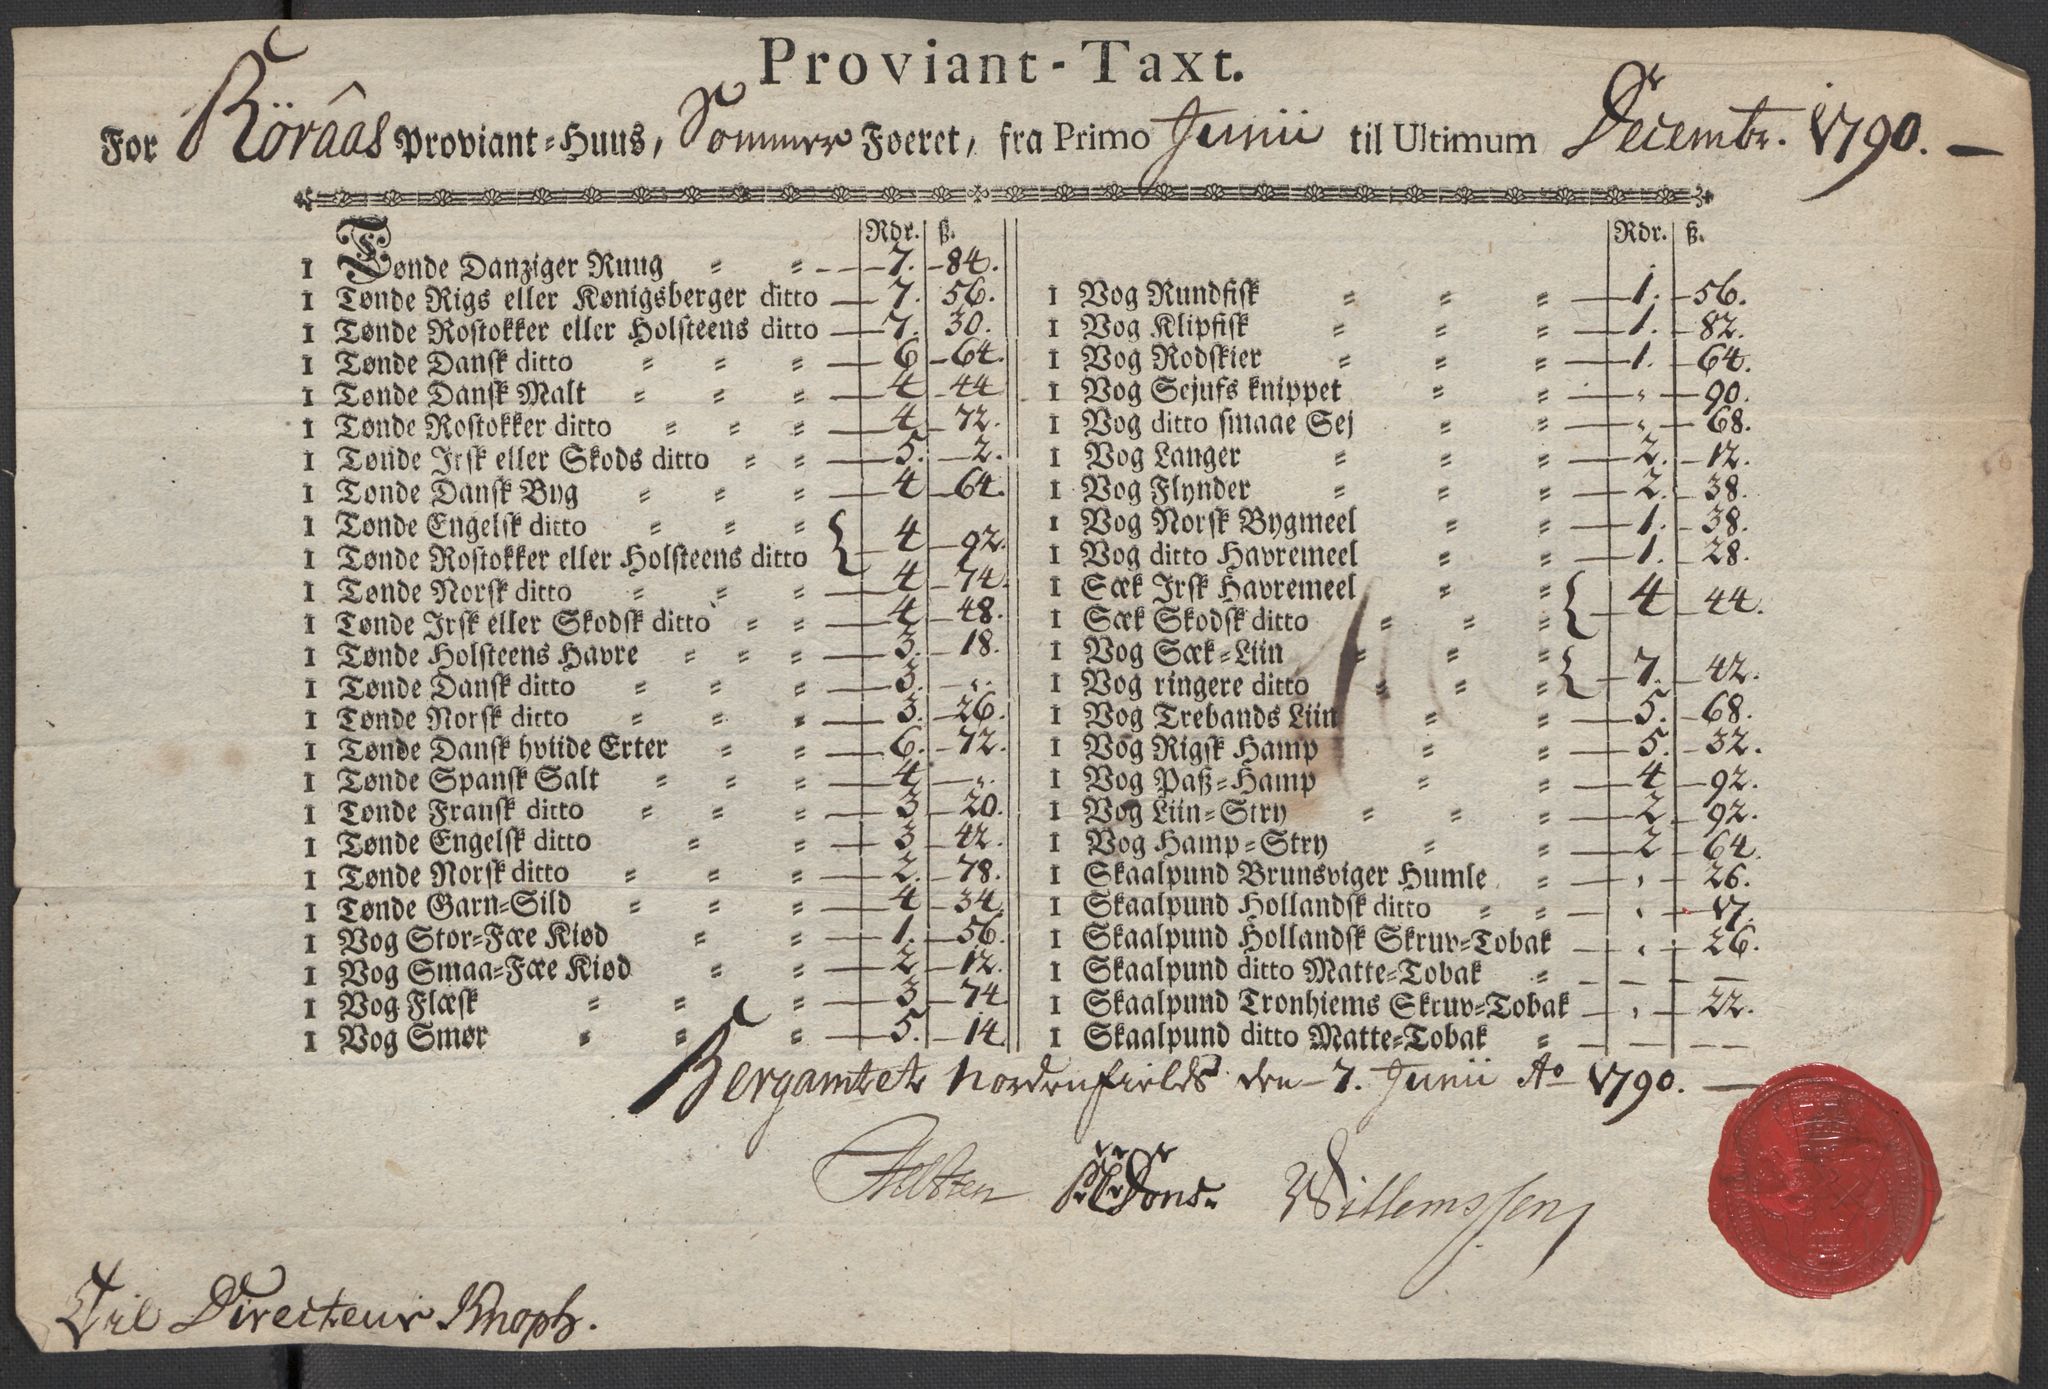 Proviant-Taxt.
For Röraas Proviant-Huus, Sommer Føeret, fra Primo Junii til Ultimum Decembr. 1790.
Rdr. ß.
1 Tønde Danziger Ruug 7. 84.
1 Tønde Rigs eller Kønigsberger ditto 7. 56.
1 Tønde Rostokker eller Holsteens ditto 7. 30.
1 Tønde Dansk ditto 6 64.
1 Tønde Dansk Malt 4 44
1 Tønde Rostokker ditto 4 72.
1 Tønde Irsk eller Skods ditto 5. 2.
1 Tønde Dansk Byg 4 64.
1 Tønde Engelsk ditto
1 Tønde Rostokker eller Holsteens ditto } 4 92.
1 Tønde Norsk ditto 4 74.
1 Tønde Irsk eller Skodsk ditto 4 48.
1 Tønde Holsteens Havre 3. 18.
1 Tønde Dansk ditto 3. „.
1 Tønde Norsk ditto 3. 26.
1 Tønde Dansk hviide Erter 6. 72.
1 Tønde Spansk Salt 4 „.
1 Tønde Fransk ditto 3 20.
1 Tønde Engelsk ditto 3 42.
1 Tønde Norsk ditto 2. 78.
1 Tønde Garn-Sild 4 34
1 Vog Stor-Fæe Kiød 1. 56.
1 Vog Smaa-Fæe Kiød 2 12.
1 Vog Flæsk 3 74
1 Vog Smør 5. 14.
Rdr. ß.
1 Vog Rundfisk 1. 56.
1 Vog Klipfisk 1. 82.
1 Vog Rodskier 1. 64.
1 Vog Sejufs knippet „ 90.
1 Vog ditto smaae Sej „ 68.
1 Vog Langer 2. 12.
1 Vog Flynder 2. 38.
1 Vog Norsk Bygmeel 1. 38.
1 Vog ditto Havremeel 1. 28.
1 Sæk Irsk Havremeel
1 Sæk Skodsk ditto } 4 44.
1 Vog Sæk-Liin
1 Vog ringere ditto } 7. 42.
1 Vog Trebands Liin 5. 68.
1 Vog Rigsk Hamp 5. 32.
1 Vog Paß-Hamp 4 92.
1 Vog Liin-Stry 2 92.
1 Vog Hamp-Stry 2 64.
1 Skaalpund Brunsviger Humle „ 26.
1 Skaalpund Hollandsk ditto „ 17.
1 Skaalpund Hollandsk Skruv-Tobak „ 26.
1 Skaalpund ditto Matte-Tobak — —
1 Skaalpund Tronhiems Skruv-Tobak „ 22.
1 Skaalpund ditto Matte-Tobak — —
Bergamtet Nordenfields den 7. Junii Ao 1790.
Willemssen
Til Directeur Knoph.